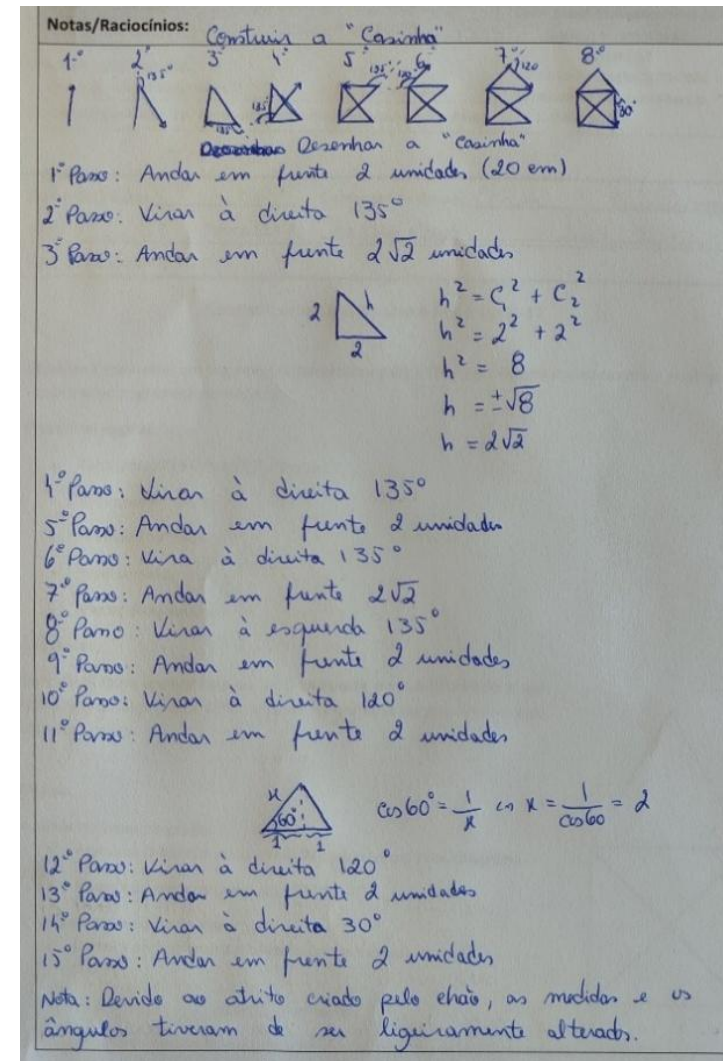 Notas/Raciocínios: Construir a "Casinha"
1º 2º 3º 4º 5º 6º 7º 8º
135° 135° 135° 135° 120° 120 30°
Desenhar a "Casinha"
1º Passo: Andar em frente 2 unidades (20 cm)
2º Passo: Virar à direita 135°
3º Passo: Andar em frente 2√2 unidades
2 h 2
h² = C₁² + C₂²
h² = 2² + 2²
h² = 8
h = ±√8
h = 2√2
4º Passo: Virar à direita 135°
5º Passo: Andar em frente 2 unidades
6º Passo: Vira à direita 135°
7º Passo: Andar em frente 2√2
8º Passo: Virar à esquerda 135°
9º Passo: Andar em frente 2 unidades
10º Passo: Virar à direita 120°
11º Passo: Andar em frente 2 unidades
x 60° 1 1 cos60° = 1/x ⇔ x = 1/cos60 = 2
12º Passo: Virar à direita 120°
13º Passo: Andar em frente 2 unidades
14º Passo: Virar à direita 30°
15º Passo: Andar em frente 2 unidades
Nota: Devido ao atrito criado pelo chão, as medidas e os
ângulos tiveram de ser ligeiramente alterados.